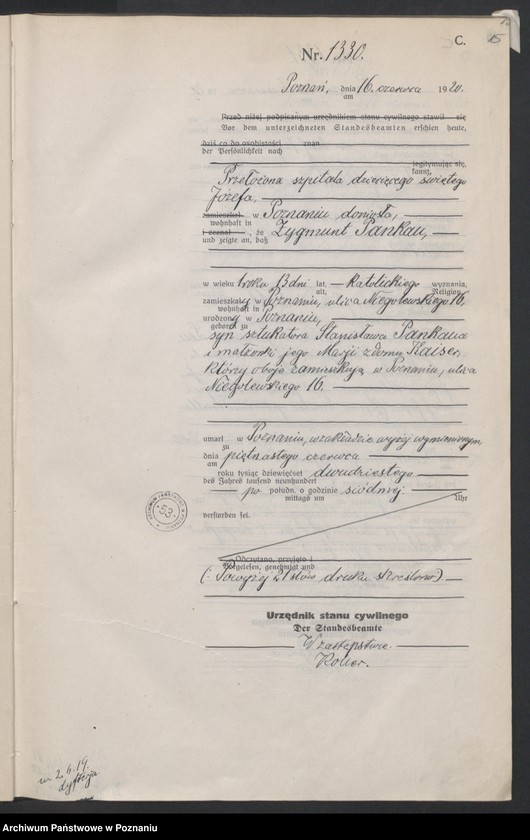 C.
15
Nr. 1330.
Poznań, dnia 16. czerwca 1920.
am
Przed niżej podpisanym urzędnikiem stanu cywilnego stawił się
Vor dem unterzeichneten Standesbeamten erschien heute,
dziś co do osobistości znan
der Persönlichkeit nach
legitymując się,
kannt,
Przełożona szpitala dziecięcego świętego
Józefa,
zamieszkał w Poznaniu doniosła,
wohnhaft in
i zeznał, że Zygmunt Pankau,
und zeigte an, daß
w wieku 1 roku 13 dni lat, katolickiego wyznania,
alt, Religion,
zamieszkały w Poznaniu, ulica Niegolewskiego 16,
wohnhaft in
urodzony w Poznaniu,
geboren zu
syn sztukatora Stanisława Pankaua
i małżonki jego Marji z domu Kaiser,
którzy oboje zamieszkują w Poznaniu, ulica
Niegolewskiego 16.
umarł w Poznaniu, w zakładzie wyżej wymienionym
zu
dnia piętnastego czerwca
am
roku tysiąc dziewięćset dwudziestego
des Jahres tausend neunhundert
po połudn. o godzinie siódmej.
mittags um Uhr
verstorben sei.
Odczytano, przyjęto i
Vorgelesen, genehmigt und
(: Powyżej 21 słów druku skreślono.)
Urzędnik stanu cywilnego
Der Standesbeamte
W zastępstwie
ARCHIWUM PAŃSTWOWE W POZNANIU
53
ur 2.6.19.
dyfterja
Archiwum Państwowe w Poznaniu